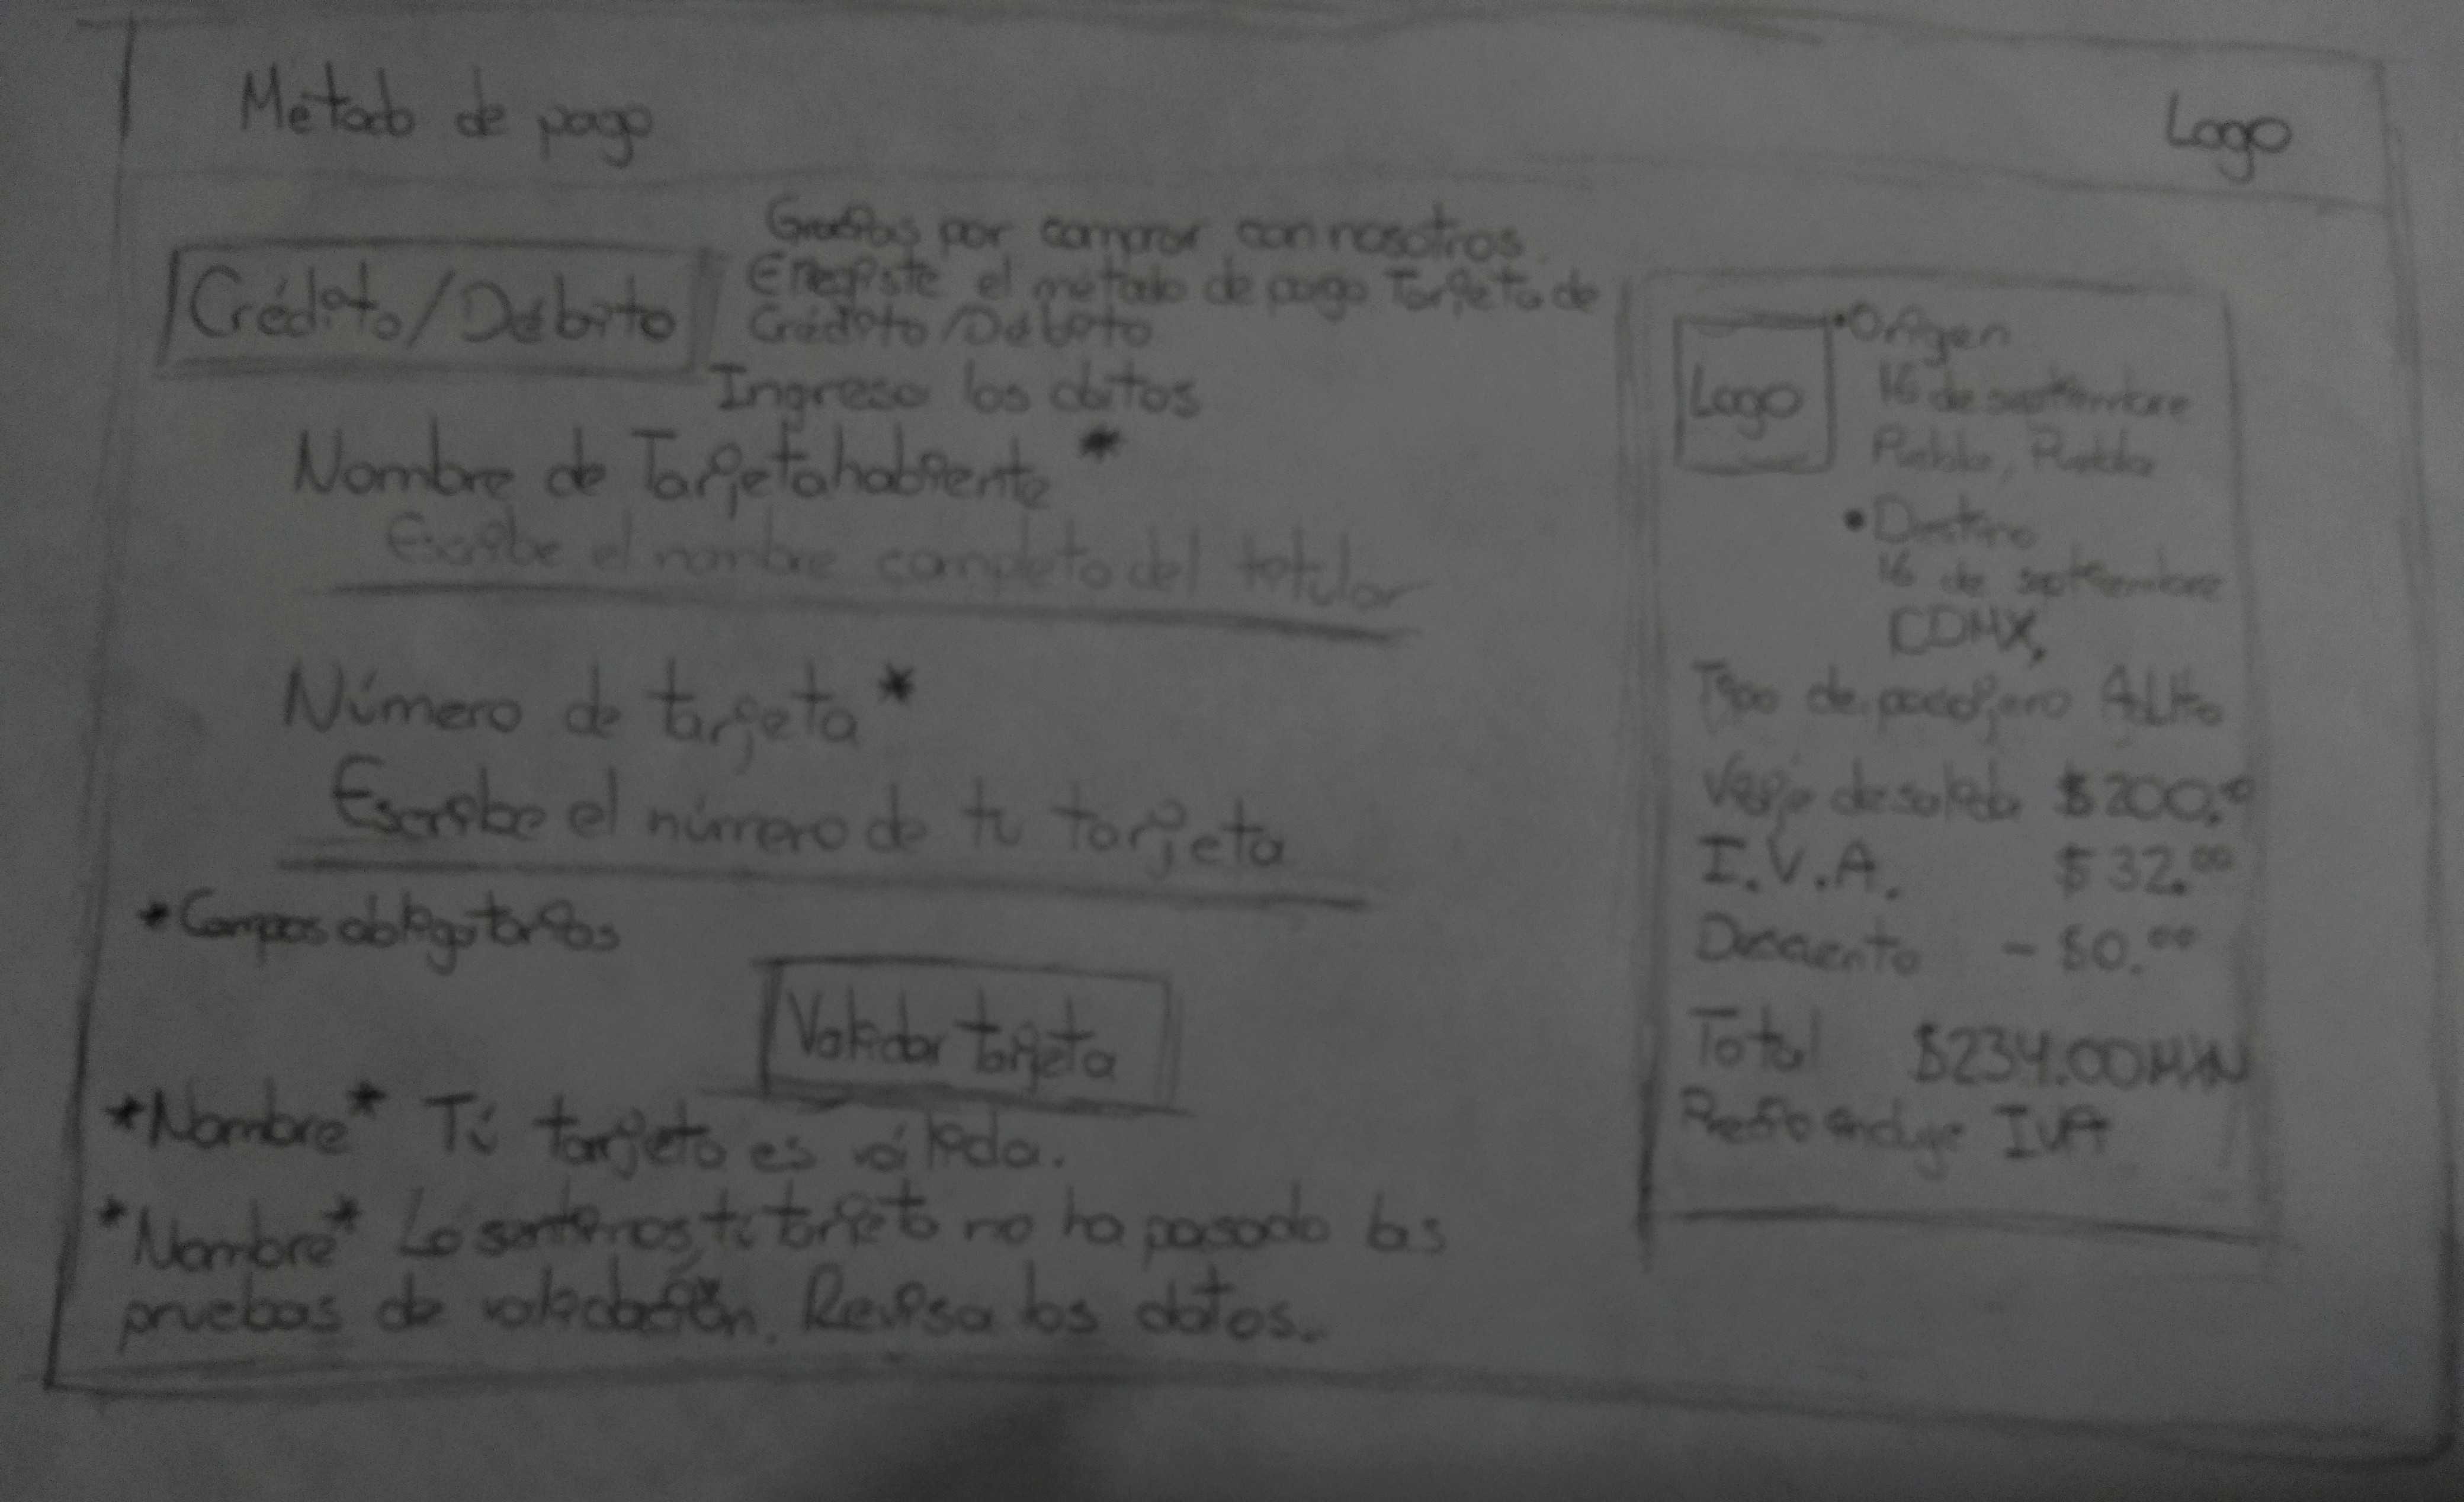 Método de pago
Logo
Crédito/Débito
Gracias por comprar con nosotros
Elegiste el método de pago Tarjeta de
Crédito/Débito
Ingresa los datos
Nombre de Tarjetahabiente *
Escribe el nombre completo del titular
Número de tarjeta *
Escribe el número de tu tarjeta
*Campos obligatorios
Validar tarjeta
*Nombre* Tú tarjeta es válida.
*Nombre* Lo sentimos, tú tarjeta no ha pasado las
pruebas de validación. Revisa los datos.
Logo
•Origen
16 de septiembre
Puebla, Puebla
•Destino
16 de septiembre
CDMX,
Tipo de pasajero Adulto
Viaje de salida $200.00
I.V.A. $32.00
Descuento - $0.00
Total $234.00 MXN
Precio incluye IVA